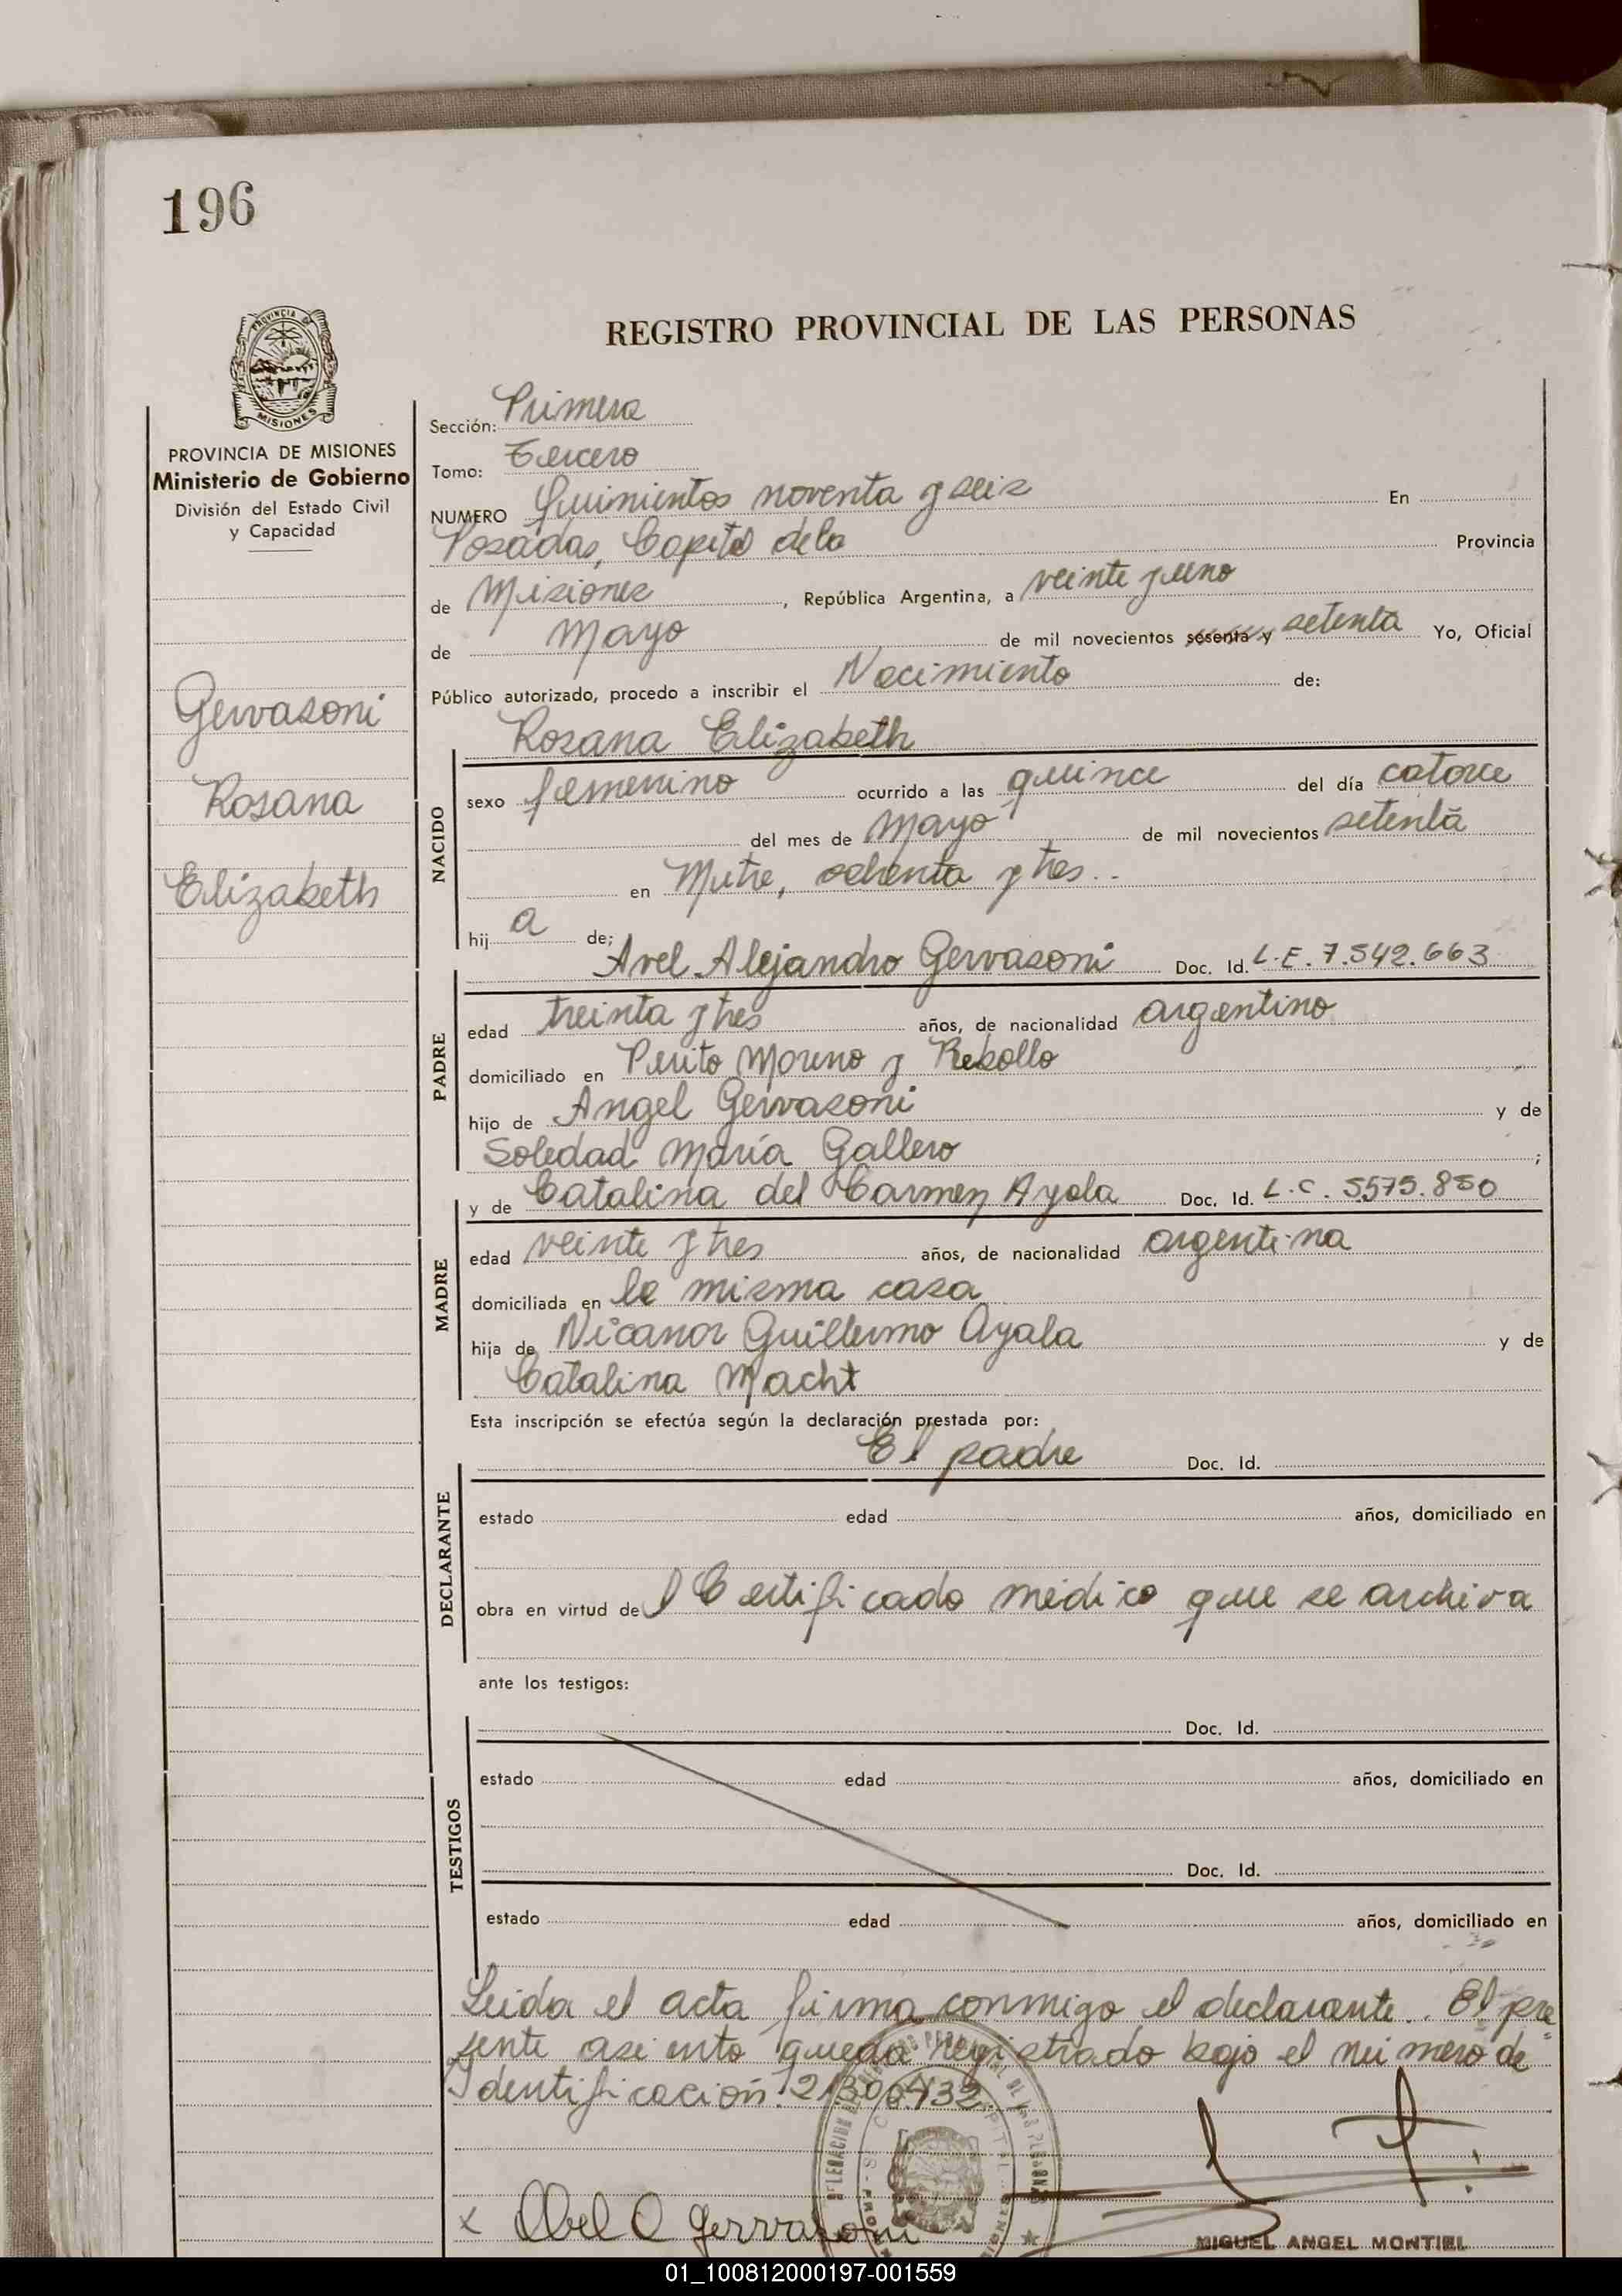 196
REGISTRO PROVINCIAL DE LAS PERSONAS
PROVINCIA DE MISIONES
Ministerio de Gobierno
División del Estado Civil
y Capacidad
Gervasoni
Rosana
Elizabeth
Sección: Primera
Tomo: Tercero
NUMERO Quinientos noventa y seis En
Posadas, Capital de la Provincia
de Misiones, República Argentina, a veinte y uno
de Mayo de mil novecientos sesenta y setenta Yo, Oficial
Público autorizado, procedo a inscribir el Nacimiento de:
Rosana Elizabeth
NACIDO
sexo femenino ocurrido a las quince del día catorce
del mes de Mayo de mil novecientos setenta
en Mitre, ochenta y tres..
hij a de;
Avel Alejandro Gervasoni Doc. Id. L.E. 7.542.663
PADRE
edad treinta y tres años, de nacionalidad argentino
domiciliado en Perito Moreno y Rebollo
hijo de Angel Gervasoni y de
Soledad María Gallero ;
y de Catalina del Carmen Ayala Doc. Id. L.C. 5575.850
MADRE
edad veinte y tres años, de nacionalidad argentina
domiciliada en la misma casa
hija de Nicanor Guillermo Ayala y de
Catalina Macht
Esta inscripción se efectúa según la declaración prestada por:
El padre Doc. Id.
DECLARANTE
estado edad años, domiciliado en
obra en virtud del Certificado médico que se archiva
ante los testigos:
Doc. Id.
TESTIGOS
estado edad años, domiciliado en
Doc. Id.
estado edad años, domiciliado en
Leida el acta firma conmigo el declarante.. El pre
sente asiento queda registrado bajo el número de
Identificación.
x Abel A Gervasoni
MIGUEL ANGEL MONTIEL
01_100812000197-001559